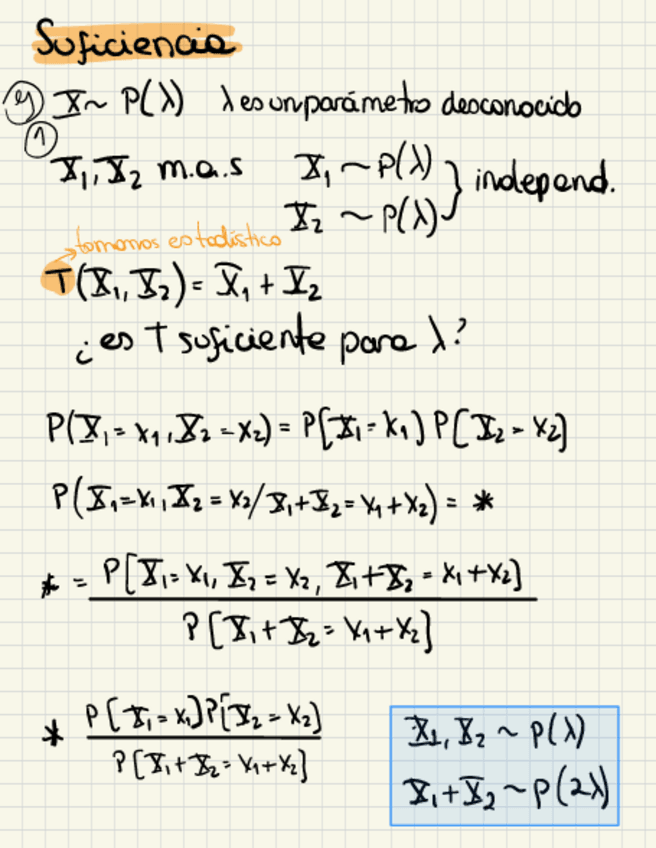 Suficiencia
ej) X ~ P(λ) λ es un parámetro desconocido
① X₁, X₂ m.a.s X₁ ~ P(λ) } independ.
X₂ ~ P(λ)
→ tomamos estadístico
T(X₁, X₂) = X₁ + X₂
¿es T suficiente para λ?
P(X₁ = x₁, X₂ = x₂) = P[X₁ = x₁) P[X₂ = x₂]
P(X₁ = x₁, X₂ = x₂ / X₁ + X₂ = x₁ + x₂) = *
* = P[X₁ = x₁, X₂ = x₂, X₁ + X₂ = x₁ + x₂]
P[X₁ + X₂ = x₁ + x₂]
* P[X₁ = x₁] P[X₂ = x₂]
P[X₁ + X₂ = x₁ + x₂]
X₁, X₂ ~ P(λ)
X₁ + X₂ ~ P(2λ)